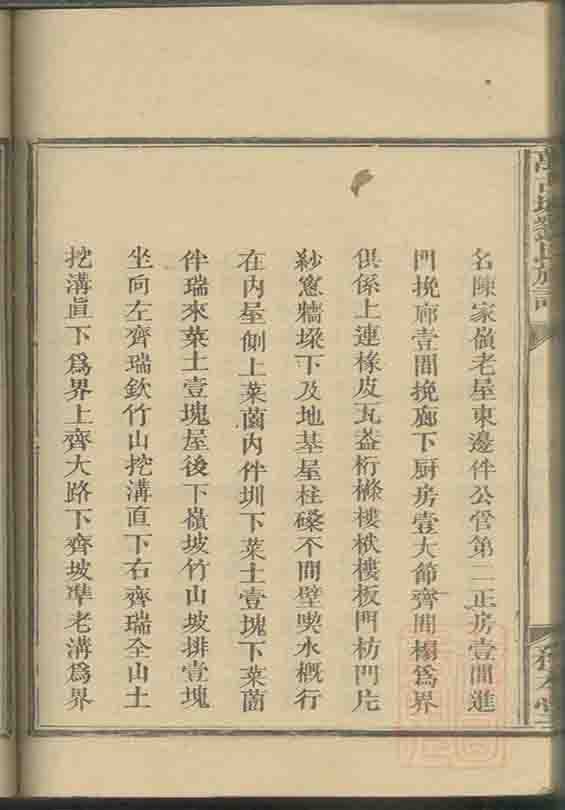 名陳家嶺老屋東邊件公管第二正房壹間進
門挽廊壹間挽廊下厨房壹大節齊間榻爲界
俱係上連椽皮瓦葢桁檁樓栿樓板門枋門片
紗窓牆垛下及地基星柱磉不間壁喫水概行
在內屋側上菜薗內件圳下菜土壹塊下菜薗
件瑞來菜土壹塊屋後下嶺坡竹山坡排壹塊
坐向左齊瑞欽竹山挖溝直下右齊瑞全山土
挖溝直下爲界上齊大路下齊坡準老溝爲界